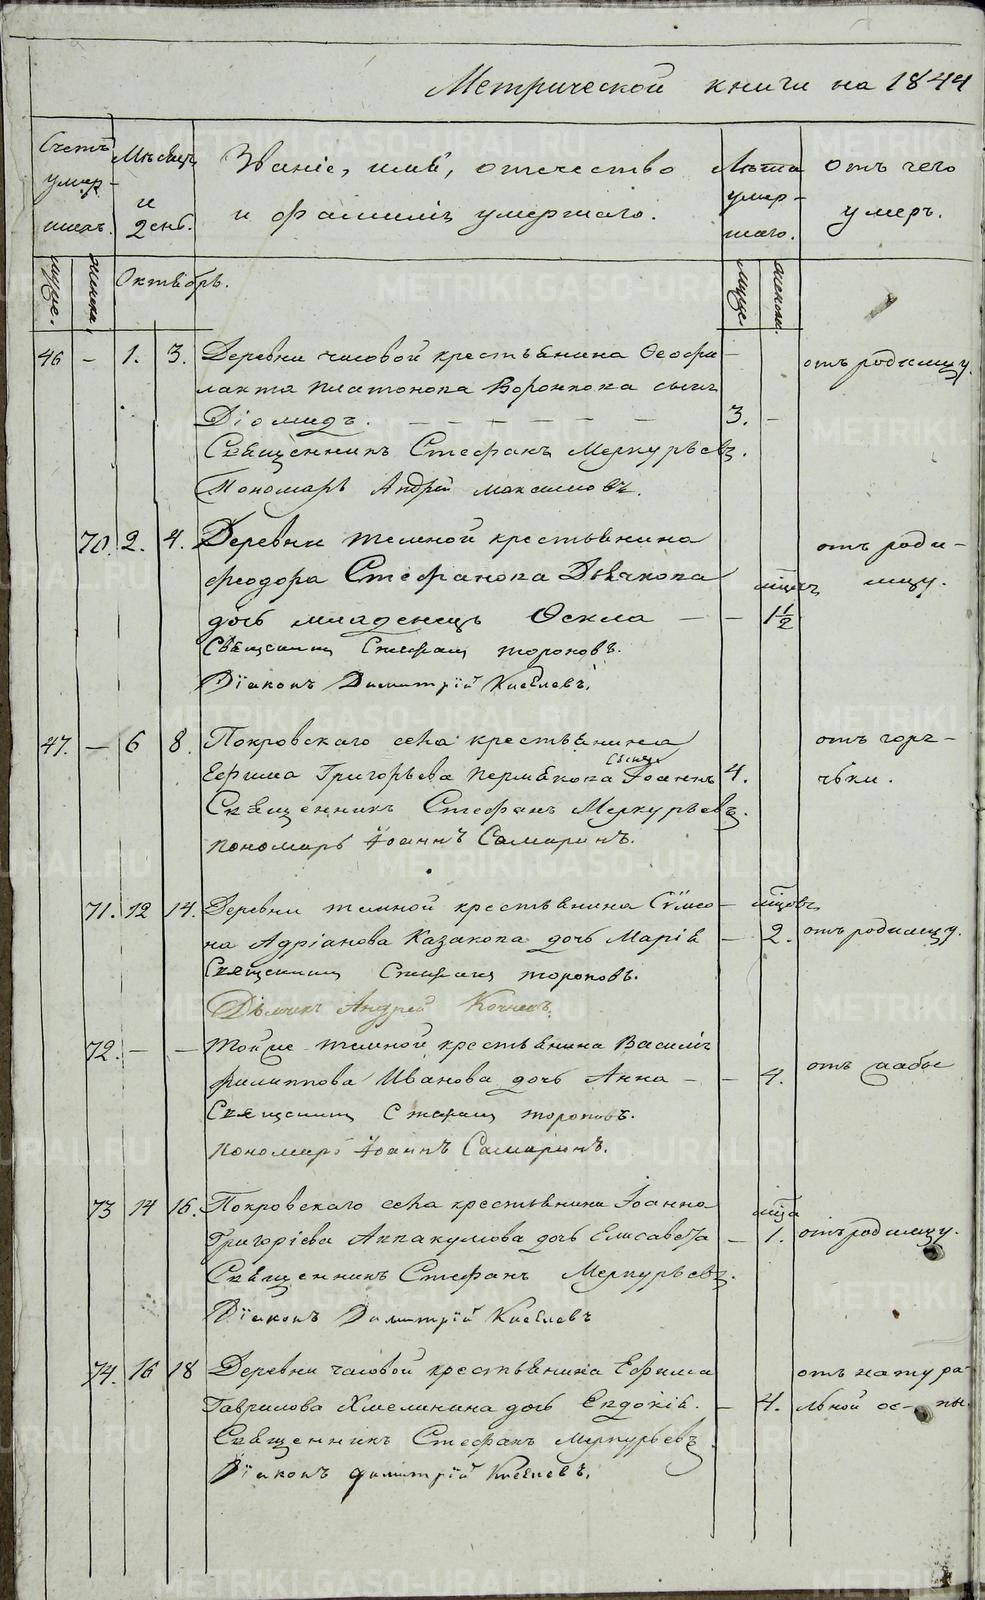 Метрической книги на 1844
Счетъ умер- шихъ. Мѣсяцъ и день. Званіе, имя, отечество и фамилія умершаго. Лѣта умер- шаго. отъ чего умеръ.
муже. женска. Октябрь. муже. женска.
46 – 1. 3. Деревни часовой крестьянина Ѳеофи – отъ родимцу.
лакта Платонова Воронкова сынъ
Діомидъ. – – – – – – 3. –
Священникъ Стефанъ Меркурьевъ.
Пономарь Андрей Максимовъ.
70. 2. 4. Деревни темной крестьянина отъ роди-
Феодора Стефанова Дьячкова мѣсяцъ мцу.
дочь младенецъ Ѳекла – – 1½
Священникъ Стефанъ Тороповъ.
Діаконъ Димитрій Киселевъ.
47. – 6 8. Покровскаго села крестьянина отъ горя-
сынъ
Ефима Григорьева Пермякова Іоаннъ 4. чьки.
Священникъ Стефанъ Меркурьевъ.
пономарь Іоаннъ Самаринъ.
71. 12 14. Деревни темной крестьянина Сѵмео – мѣсяцовъ
на Адріанова Казакова дочь Марія – 2. отъ родимцу.
Священникъ Стефанъ Тороповъ.
Дьячекъ Андрей Кочневъ.
72. – – Тойже темной крестьянина Василія
Филиппова Иванова дочь Анна – – 4. отъ жабы
Священникъ Стефанъ Тороповъ.
пономарь Іоаннъ Самаринъ.
73 14 16. Покровскаго села крестьянина Іоанна мѣсяца
Григоріева Аввакумова дочь Елисавета – 1. отъ родимцу.
Священникъ Стефанъ Меркурьевъ.
Діаконъ Димитрій Киселевъ
74. 16 18 Деревни часовой крестьянина Ефима отъ натура-
Гаврилова Хмелинина дочь Евдокія. – 4. льной ос- пы.
Священникъ Стефанъ Меркурьевъ
Діаконъ Димитрій Киселевъ.
METRIKI.GASO-URAL.RU